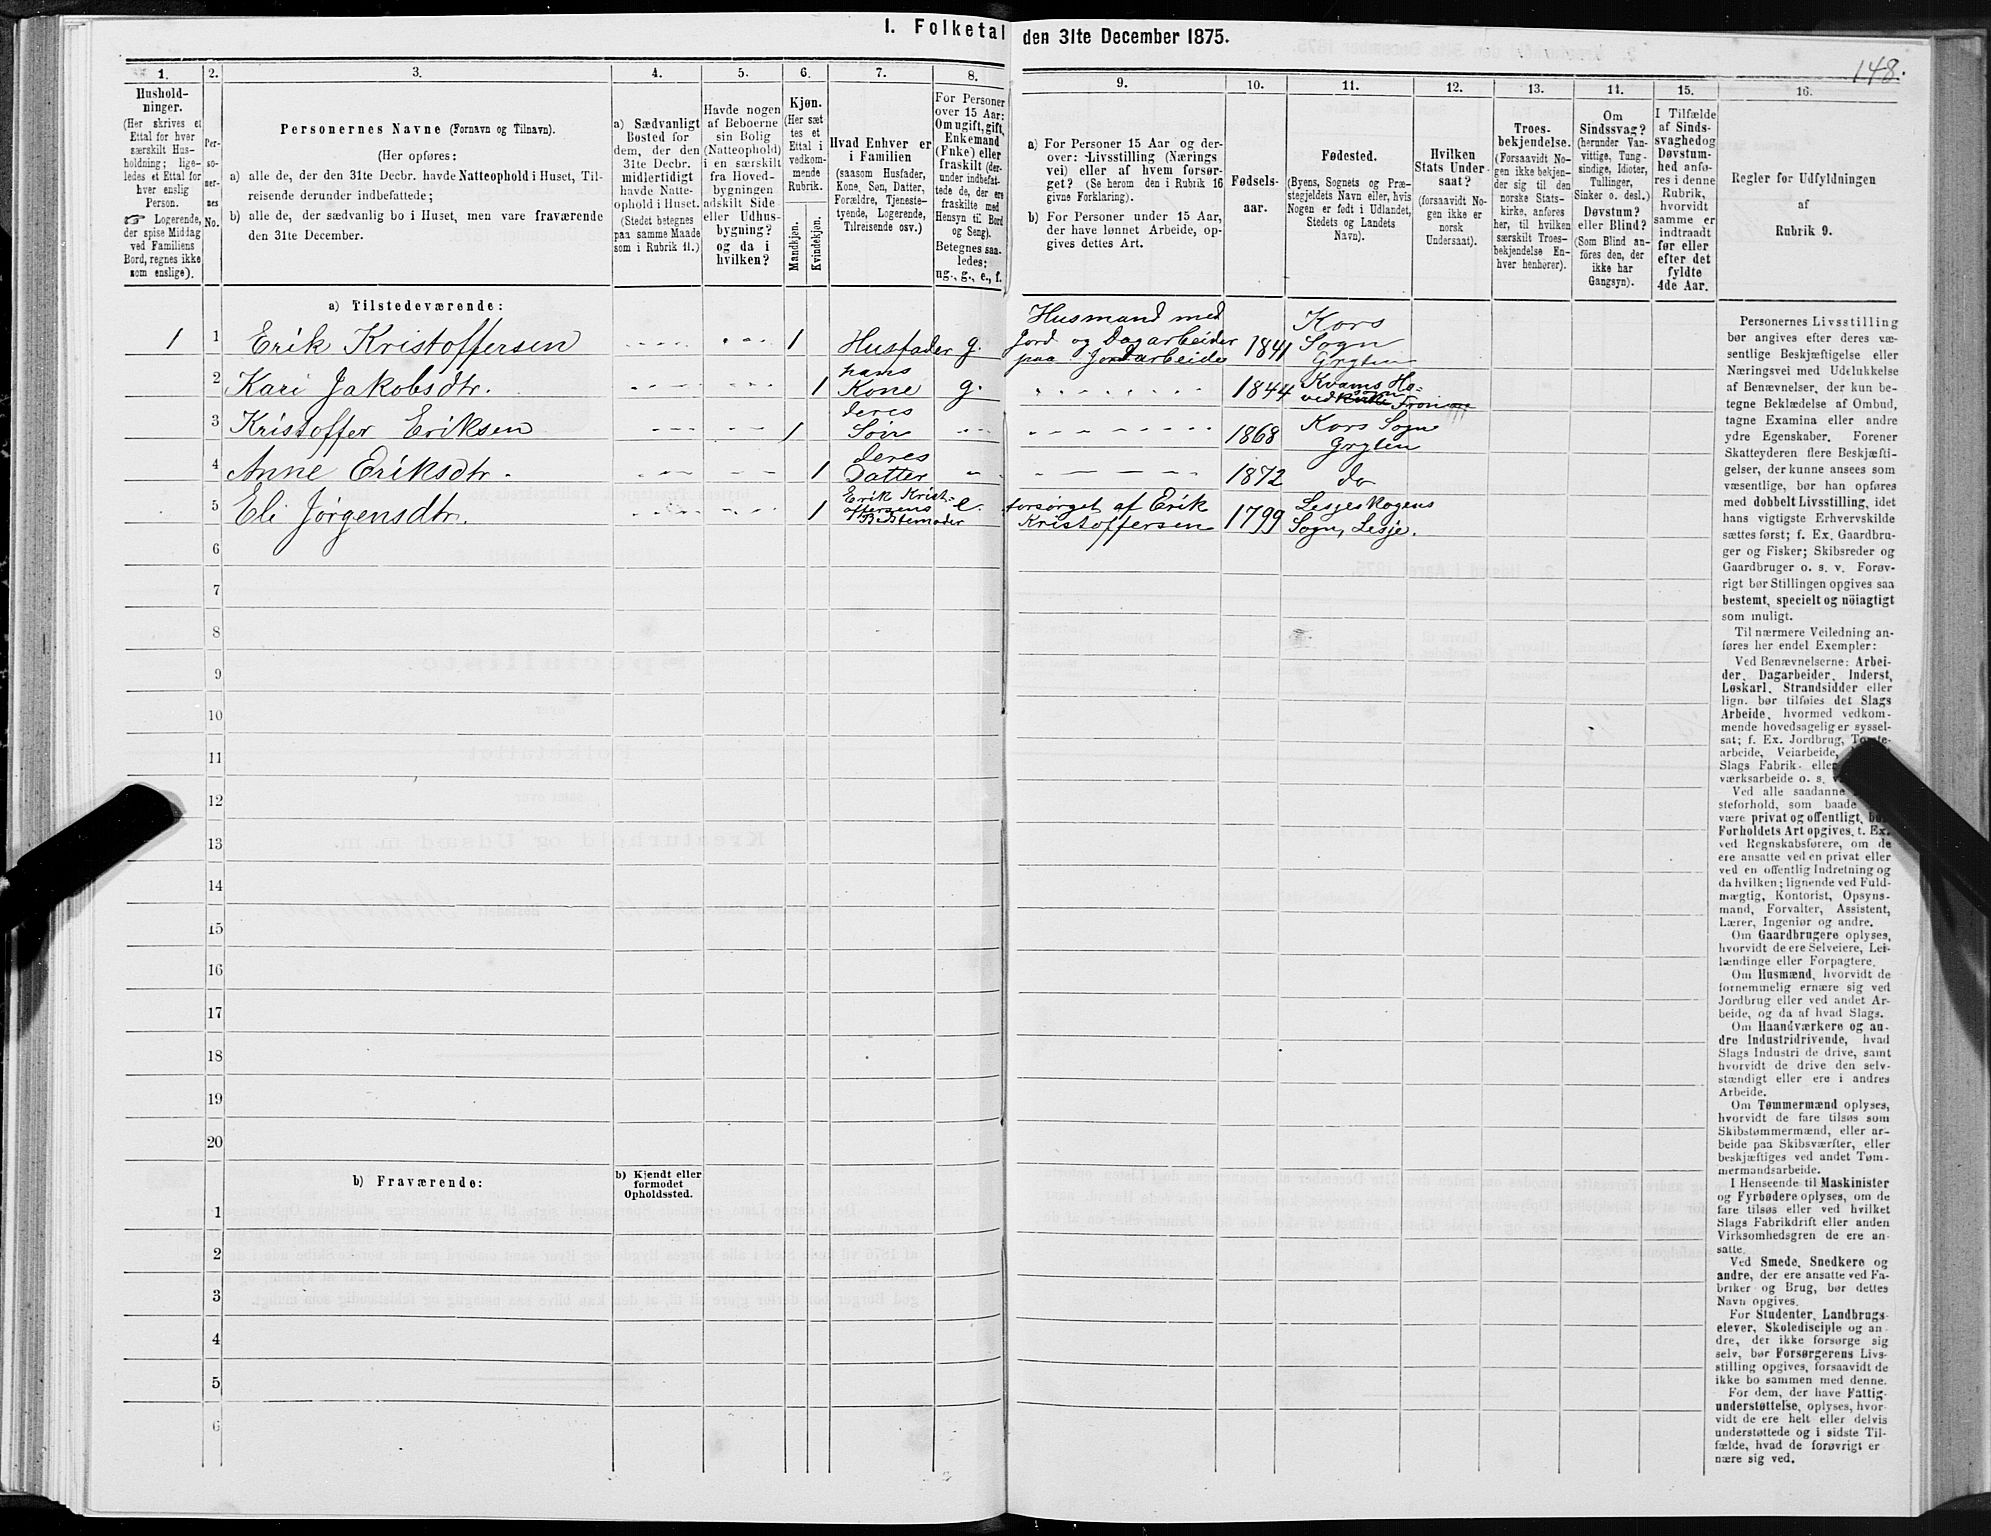 I. Folketal den 31te December 1875.
148.
1.
Hushold-
ninger.
(Her skrives et
Ettal for hver
særskilt Hus-
holdning; lige-
ledes et Ettal for
hver enslig
Person.
☞ Logerende,
der spise Middag
ved Familiens
Bord, regnes ikke
som enslige).
2.
Per-
so-
ner-
nes
No.
3.
Personernes Navne (Fornavn og Tilnavn).
(Her opføres:
a) alle de, der den 31te Decbr. havde Natteophold i Huset, Til-
reisende derunder indbefattede;
b) alle de, der sædvanlig bo i Huset, men vare fraværende
den 31te December.
4.
a) Sædvanligt
Bosted for
dem, der den
31te Decbr.
midlertidigt
havde Natte-
ophold i Huset.
(Stedet betegnes
paa samme Maade
som i Rubrik 11.)
5.
Havde nogen
af Beboerne
sin Bolig
(Natteophold)
i en særskilt
fra Hoved-
bygningen
adskilt Side-
eller Udhus-
bygning?
og da i
hvilken?
6.
Kjøn.
(Her sæt
tes et
Ettal i
vedkom-
mende
Rubrik.
Mandkjøn.
Kvindekjøn.
7.
Hvad Enhver er
i Familien
(saasom Husfader,
Kone, Søn, Datter,
Forældre, Tjeneste-
tyende, Logerende,
Tilreisende osv.)
8.
For Personer
over 15 Aar:
Om ugift, gift,
Enkemand
(Enke) eller
fraskilt (der-
under indbefat-
tede de, der ere
fraskilte med
Hensyn til Bord
og Seng).
Betegnes saa-
ledes:
ug., g., e., f.
9.
a) For Personer 15 Aar og der-
over: Livsstilling (Nærings
vei) eller af hvem forsør-
get? (Se herom den i Rubrik 16
givne Forklaring).
b) For Personer under 15 Aar,
der have lønnet Arbeide, op-
gives dettes Art.
10.
Fødsels-
aar.
11.
Fødested.
(Byens, Sognets og Præ-
stegjeldets Navn eller, hvis
Nogen er født i Udlandet,
Stedets og Landets
Navn).
12.
Hvilken
Stats Under-
saat?
(forsaavidt No-
gen ikke er
norsk
Undersaat).
13.
Troes-
bekjendelse.
(Forsaavidt No-
gen ikke bekjen-
der sig til den
norske Stats-
kirke, anføres
her, til hvilken
særskilt Troes-
bekjendelse En-
hver henhører).
14.
Om
Sindssvag?
(herunder Van-
vittige, Tung-
sindige, Idioter,
Tullinger,
Sinker o. desl.)
Døvstum?
eller Blind?
(Som Blind an-
føres den, der
ikke har
Gangsyn).
15.
I Tilfælde
af Sinds-
svaghed og
Døvstum-
hed anfø-
res i denne
Rubrik,
hvorvidt
samme er
indtraadt
før eller
efter det
fyldte
4de Aar.
16.
Regler for Udfyldningen
af
Rubrik 9.
a) Tilstedeværende:
Husmand med Kors
1 1 Erik Kristoffersen 1 Husfader g. Jord og Dagarbeider 1841 Sogn
paa Jordarbeide Grytten
2 Kari Jakobsdtr. 1 hans Kone g. 1844 Kvams Ho-
vedsogn Fron
3 Kristoffer Eriksen 1 deres Søn 1868 Kors Sogn
Grytten
4 Anne Eriksdtr. 1 deres Datter 1872 do
5 Eli Jørgensdtr. 1 Erik Krist- e. forsørget af Erik 1799 Lesjeskogens
offersens Bedstemoder Kristoffersen Sogn, Lesje.
6
7
8
9
10
11
12
13
14
15
16
17
18
19
20
b) Fraværende:
b) Kjendt eller
formodet
Opholdssted.
1
2
3
4
5
6
Personernes Livsstilling
bør angives efter deres væ-
sentlige Beskjæftigelse eller
Næringsvei med Udelukkelse
af Benævnelser, der kun be-
tegne Beklædelse af Ombud,
tagne Examina eller andre
ydre Egenskaber. Forener
Skatteyderen flere Beskjæfti-
gelser, der kunne ansees som
væsentlige, bør han opføres
med dobbelt Livsstilling, idet
hans vigtigste Erhvervskilde
sættes først; f. Ex. Gaardbru-
ger og Fisker; Skibsreder og
Gaardbruger o. s. v. Forøv-
rigt bør Stillingen opgives saa
bestemt, specielt og nöiagtigt
som muligt.
Til nærmere Veiledning an-
føres her endel Exempler:
Ved Benævnelserne: Arbei-
der, Dagarbeider, Inderst,
Løskarl, Strandsidder eller
lign. bør tilføies det Slags
Arbeide, hvormed vedkom-
mende hovedsagelig er syssel-
sat; f. Ex. Jordbrug,
arbeide, Veiarbeide,
Slags Fabrik- eller
værksarbeide o. s. v.
Ved alle saadanne
steforhold, som baade
være privat og offentligt, bør
Forholdets Art opgives, t. Ex.
ved Regnskabsførere, om de
ere ansatte ved en privat eller
ved en offentlig Indretning og
da hvilken; lignende ved Fuld-
mægtig, Kontorist, Opsyns-
mand, Forvalter, Assistent,
Lærer, Ingeniør og andre.
Om Gaardbrugere oplyses,
hvorvidt de ere Selveiere, Lei-
lændinge eller Forpagtere.
Om Husmænd, hvorvidt de
fornemmelig ernære sig ved
Jordbrug eller ved andet Ar-
beide, og da af hvad Slags.
Om Haandværkere og an-
dre Industridrivende, hvad
Slags Industri de drive, samt
hvorvidt de drive den selv-
stændigt eller ere i andres
Arbeide.
Om Tømmermænd oplyses,
hvorvidt de fare tilsøs som
Skibstømmermænd, eller ar-
beide paa Skibsværfter, eller
beskjæftiges ved andet Tøm-
mermandsarbeide.
I Henseende til Maskinister
og Fyrbødere oplyses, om de
fare tilsøs eller ved hvilket
Slags Fabrikdrift eller anden
Virksomhedsgren de ere an-
satte.
Ved Smede, Snedkere og
andre, der ere ansatte ved Fa-
briker og Brug, bør dettes
Navn opgives.
For Studenter, Landbrugs-
elever, Skoledisciple og an-
dre, der ikke forsørge sig
selv, bør Forsørgerens Livs-
stilling opgives, forsaavidt de
ikke bo sammen med denne.
For dem, der have Fattig-
understøttelse, oplyses, hvor-
vidt de ere helt eller delvis
understøttede og i sidste Til-
fælde, hvad de forøvrigt er
nære sig ved.